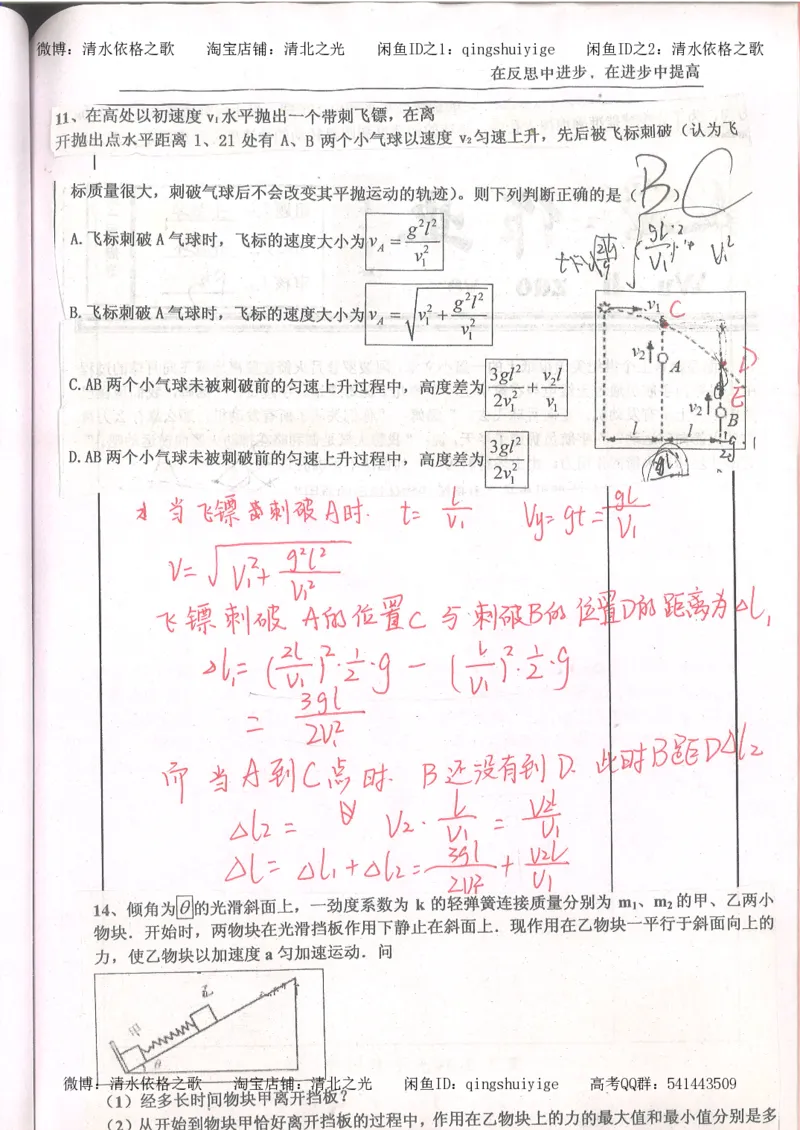 微博：清水依格之歌 淘宝店铺：清北之光 闲鱼ID之1：qingshuiyige 闲鱼ID之2：清水依格之歌
在反思中进步，在进步中提高
11、在高处以初速度 v₁水平抛出一个带刺飞镖，在离
开抛出点水平距离 l、2l 处有 A、B 两个小气球以速度 v₂匀速上升，先后被飞标刺破（认为飞
标质量很大，刺破气球后不会改变其平抛运动的轨迹）。则下列判断正确的是（ ）
BC
A.飞标刺破 A 气球时，飞标的速度大小为 v_A = g²l²/v₁²
B.飞标刺破 A 气球时，飞标的速度大小为 v_A = √(v₁² + g²l²/v₁²)
C.AB 两个小气球未被刺破前的匀速上升过程中，高度差为 3gl²/2v₁² + v₂l/v₁
D.AB 两个小气球未被刺破前的匀速上升过程中，高度差为 3gl²/2v₁²
v₁ C
v₂ A D
E
v₂ B
l l
当飞镖刺破A时. t= l/v₁ Vy=gt= gl/V₁
V= √(V₁²+ g²l²/V₁²)
飞镖刺破 A的位置C 与刺破B的位置D的距离为Δl₁
Δl₁= (2l/V₁)²·1/2·g − (l/V₁)²·1/2·g
= 3gl/2V₁²
而当A到C点时. B还没有到D. 此时B距D Δl₂
Δl₂ = V₂· l/V₁ = V₂l/V₁
Δl= Δl₁+Δl₂= 3gl/2V₁² + V₂l/V₁
14、倾角为θ的光滑斜面上，一劲度系数为 k 的轻弹簧连接质量分别为 m₁、m₂ 的甲、乙两小
物块．开始时，两物块在光滑挡板作用下静止在斜面上．现作用在乙物块一平行于斜面向上的
力，使乙物块以加速度 a 匀加速运动．问
乙
甲
θ
微博：清水依格之歌 淘宝店铺：清北之光 闲鱼ID：qingshuiyige 高考QQ群：541443509
（1）经多长时间物块甲离开挡板？
（2）从开始到物块甲恰好离开挡板的过程中，作用在乙物块上的力的最大值和最小值分别是多